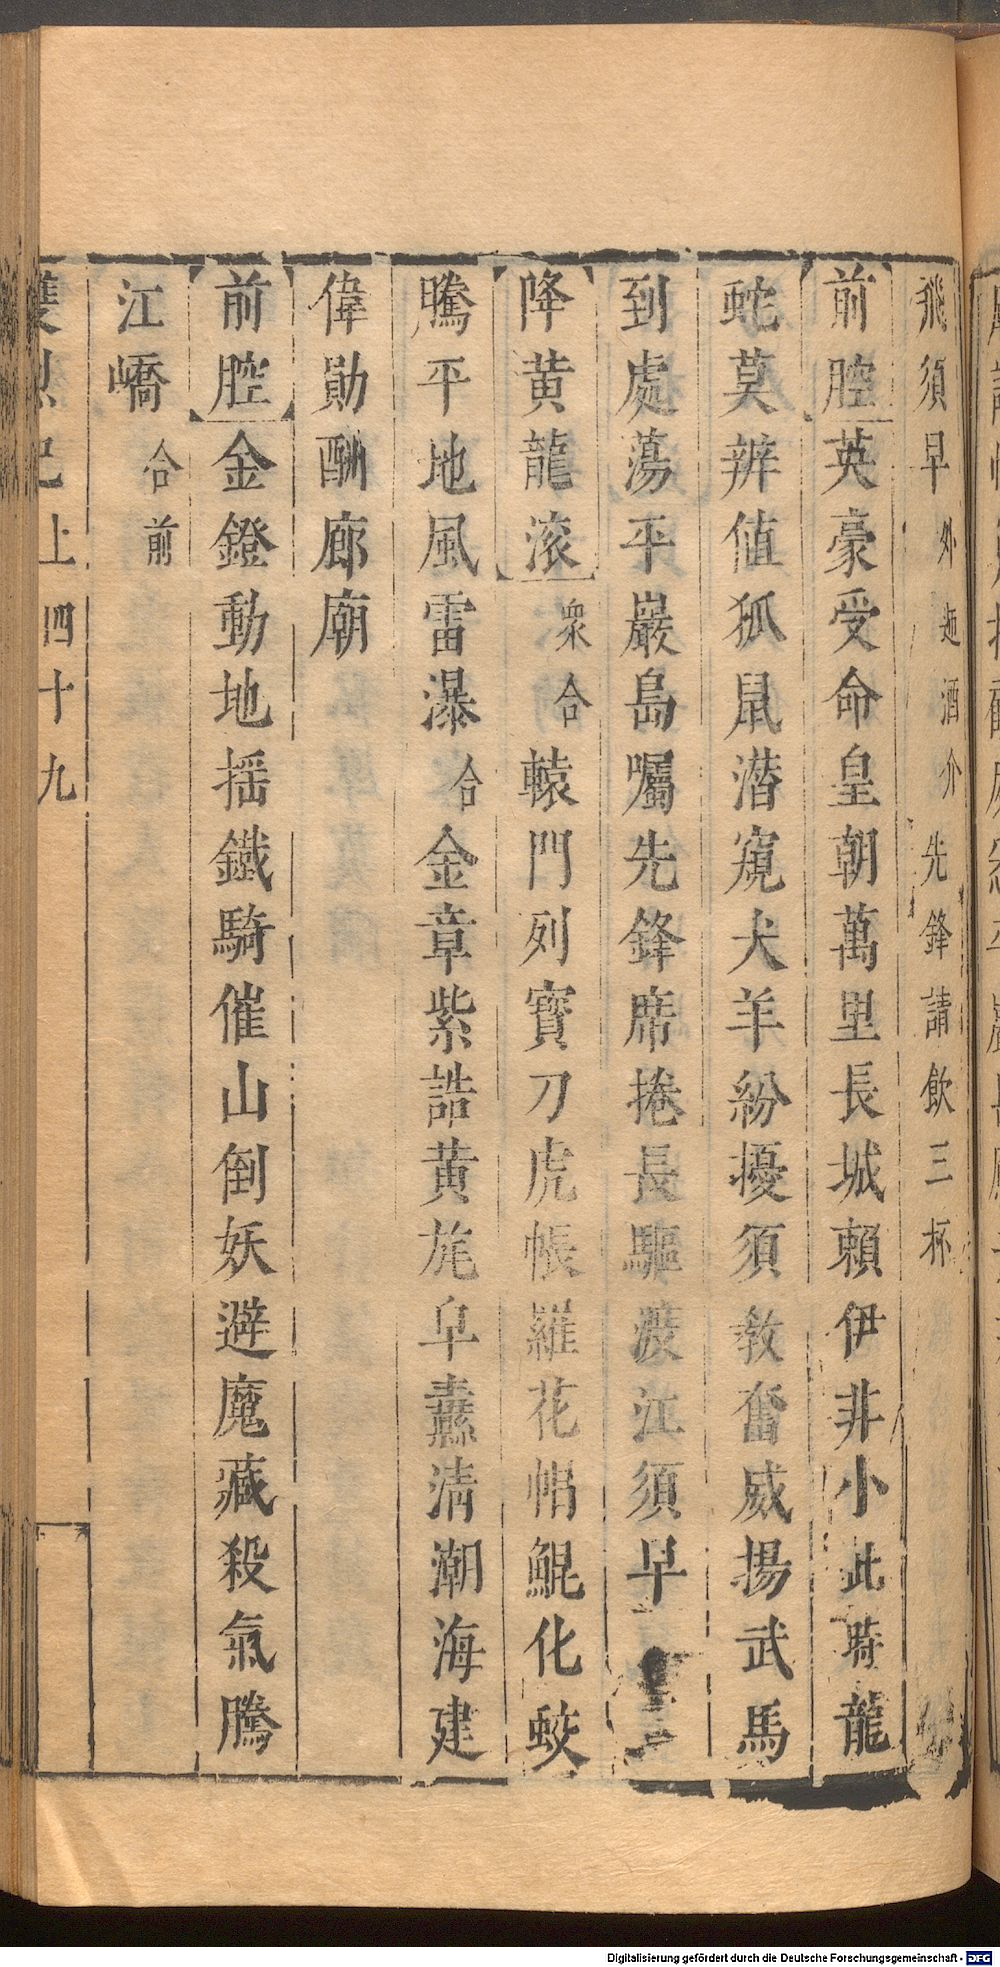 飛須早外遞酒介先鋒請飲三杯
前腔英豪受命皇朝萬里長城賴伊非小此時龍
蛇莫辨値狐鼠潛窺犬羊紛擾須教奮威揚武馬
到處蕩平巖島囑先鋒席捲長驅渡江須早
降黃龍滚衆合轅門列寶刀虎帳羅花帽鯤化蛟
騰平地風雷瀑合金章紫誥黃旄皁纛清潮海建
偉勛酬廊廟
前腔金鐙動地揺鐵騎催山倒妖避魔藏殺氣騰
江嶠合前
雙烈記上四十九
Digitalisierung gefördert durch die Deutsche Forschungsgemeinschaft - DFG